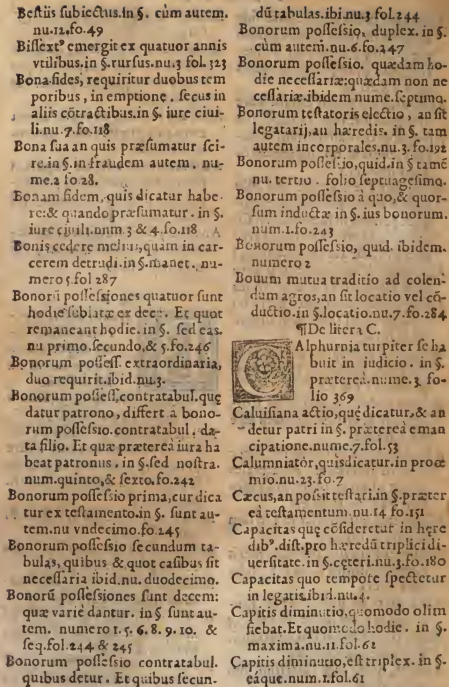 Bestiis subiectus.in §. cùm autem.
nu.12.fo.49
Bissextꝰ emergit ex quatuor annis
vtilibus.in §.rursus.nu.3 fol.323
Bona fides, requiritur duobus tem
poribus, in emptione. secus in
aliis cōtractibus.in §. iure ciui-
li.nu.7.fo.118
Bona sua an quis præsumatur sci-
re.in §.in fraudem autem. nu-
me.2 fo 28.
Bonam fidem, quis dicatur habe-
re: & quando præsumatur. in §.
iure ciuili.num.3 & 4.fo.118
Bonis cedere melius, quam in car-
cerem detrudi.in §.manet. nu-
mero 5.fol 287
Bonorū possessiones quatuor sunt
hodie sublatæ ex dec. Et quot
remaneant hodie.in §. sed eas.
nu primo.secundo,& 5.fo.246
Bonorum possess. extraordinaria,
duo requirit.ibid.nu.3.
Bonorum possess.contratabul.quę
datur patrono, differt à bono-
rum possessio.contratabul. da-
ta filio. Et quæ præterea iura ha
beat patronus. in §.sed nostra.
num.quinto,& sexto.fo.242
Bonorum possessio prima,cur dica
tur ex testamento.in §. sunt au-
tem.nu vndecimo.fo.245
Bonorum possessio secundum ta-
bulas, quibus & quot casibus sit
necessaria ibid.nu.duodecimo.
Bonorū possessiones sunt decem:
quæ variè dantur. in § sunt au-
tem. numero 1.5.6.8.9.10. &
seq.fol.244 & 245
Bonorum possessio contratabul.
quibus detur. Et quibus secun-
dū tabulas.ibi.nu.3.fol.244
Bonorum possessio, duplex. in §.
cùm autem.nu.6.fo.247
Bonorum possessio. quædam ho-
die necessariæ:quædam non ne
cessariæ.ibidem nume.septimo.
Bonorum testatoris electio, an sit
legatarij,an hæredis. in §. tam
autem incorporales,nu.3.fo.192
Bonorum possessio,quid.in § tamē
nu. tertio. folio septuagesimo.
Bonorum possessio à quo,& quor-
sum inductæ in §.ius bonorum.
num.1.fo.243
Bonorum possessio, quid. ibidem.
numero 2
Bouum mutua traditio ad colen-
dum agros,an sit locatio vel cō-
ductio.in §.locatio.nu.7.fo.284
¶De litera C.
CAlphurnia turpiter se ha
buit in iudicio. in §.
præterea.nume.3 fo-
lio 369
Caluisiana actio,quę dicatur,& an
detur patri in §. præterea eman
cipatione.nume.7.fol.53
Calumniator,quis dicatur.in prooe
mio.nu.23.fo.7
Cæcus,an possit testari.in §.præter
eà testamentum.nu.14 fo.151
Capacitas quę cōsideretur in hęre
dibꝰ.dist.pro hæredū triplici di-
uersitate.in §.cęteri.nu.3.fo.180
Capacitas quo tempore spectetur
in legatis.ibid.nu.4.
Capitis diminutio,quomodo olim
fiebat.Et quomodo hodie. in §.
maxima.nu.11.fol.62
Capitis diminutio,est triplex. in §.
eáque.num.1.fol.61